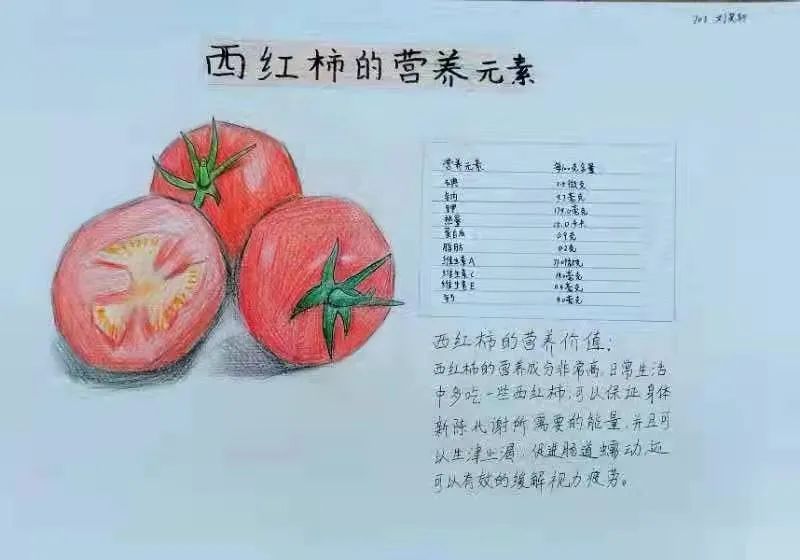 703 刘昊轩
西红柿的营养元素
营养元素 每100克含量
碘
钠 9.7毫克
钾 179.0毫克
热量 15.0千卡
蛋白质 0.9克
脂肪 0.2克
维生素A
维生素C 14.0毫克
维生素E
钙 4.0毫克
西红柿的营养价值:
西红柿的营养成分非常高,日常生活
中多吃一些西红柿,可以保证身体
新陈代谢所需要的能量,并且可
以生津止渴,促进肠道蠕动,还
可以有效的缓解视力疲劳。